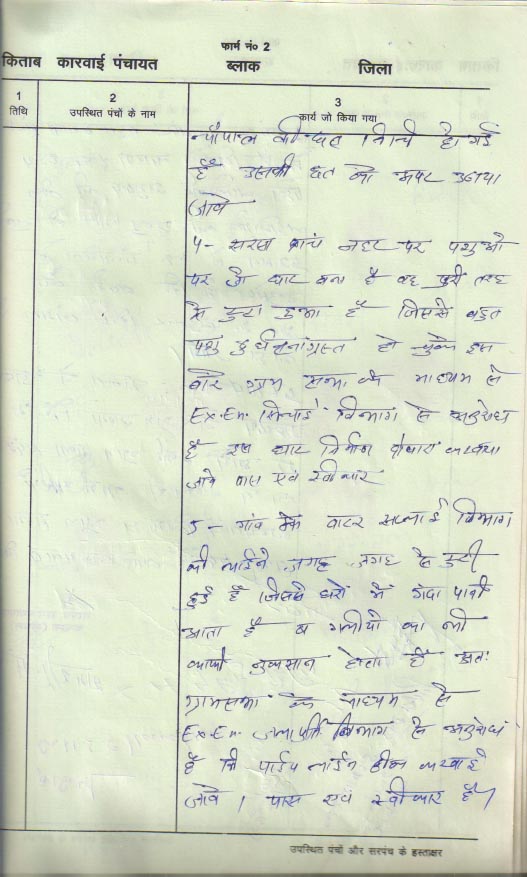 फार्म नं० 2
किताब कारवाई पंचायत ब्लाक जिला
1 2 3
तिथि उपस्थित पंचों के नाम कार्य जो किया गया
चौपाल की छत निची हो गई
है उसकी छत को ऊपर उठाया
जावे
4- पांच नहर पर पशुओ
पर जो घाट बना है वह पुरी तरह
से टुटा हुआ है जिससे बहुत
पशु दुर्घटनाग्रस्त हो चुके इस
बारे ग्राम सभा के माध्यम से
Ex.En. सिंचाई विभाग से अनुरोध
है इस घाट निर्माण दोबारा करवाया
जावे पास एवं स्वीकार
5- गांव में वाटर सप्लाई विभाग
की लाईने जगह जगह से टुटी
हुई है जिससे घरों में गंदा पानी
आता है व गलीयो का भी
काफी नुकसान होता है अतः
ग्रामसभा के माध्यम से
Ex.En. जलापूर्ति विभाग से अनुरोध
है कि पाईप लाईन ठीक करवाई
जावे । पास एवं स्वीकार है।
उपस्थित पंचों और सरपंच के हस्ताक्षर